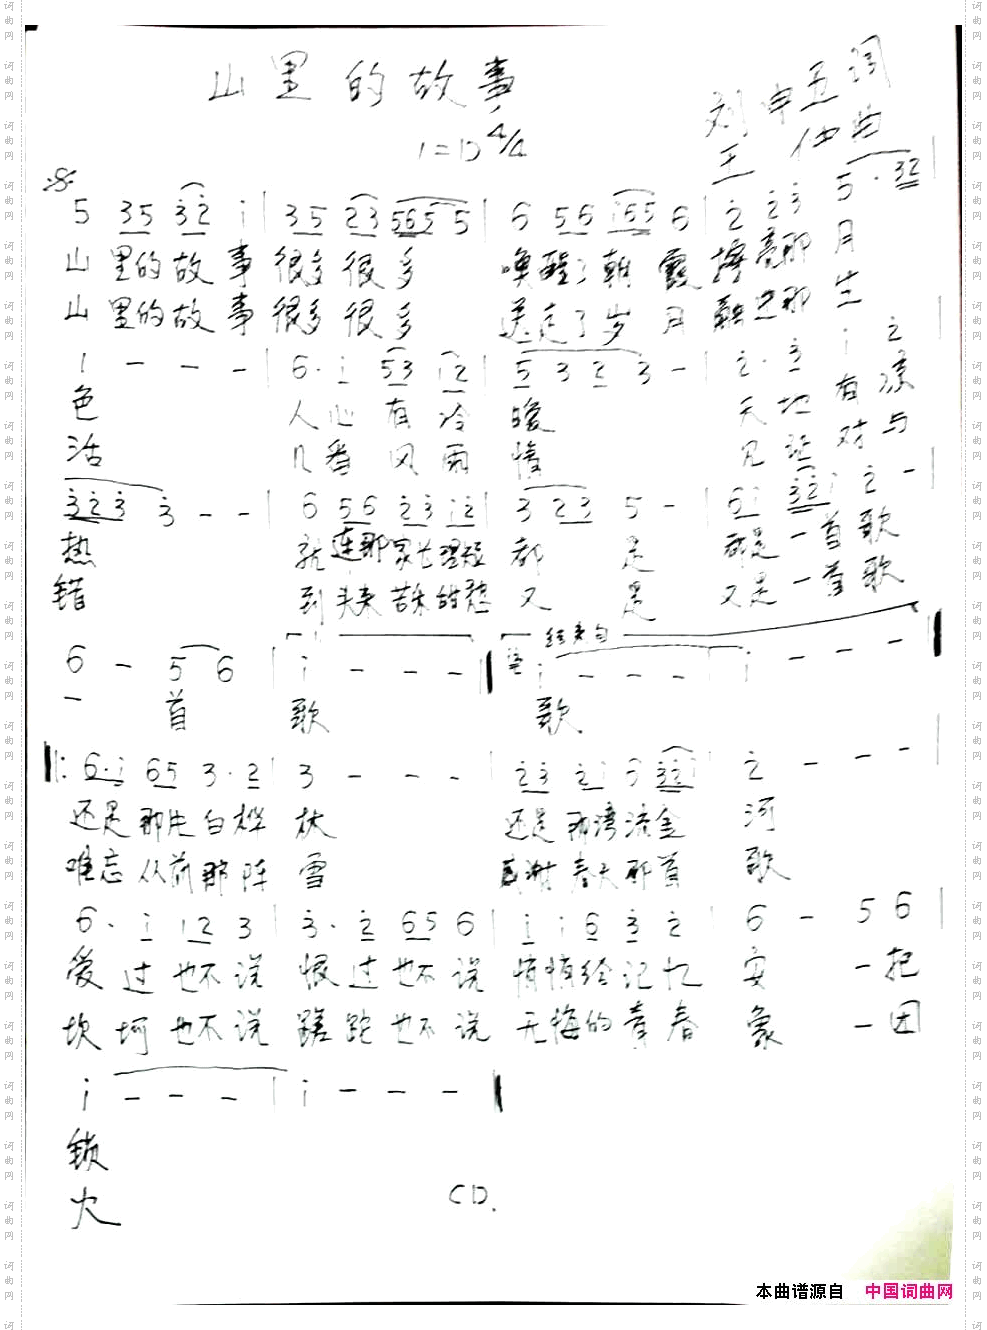 山里的故事
刘中五词
1=D 4/4
王 仲曲
5 35 32 i | 35 23 565 5 | 6 56 i65 6 | 2 23 5 · 32
山里的故事很多很多 唤醒了朝霞擦亮那月
山里的故事很多很多 送走了岁月 那生
1 - - - | 6· i 53 i2 | 5 3 2 3 - | 2· 3 i 2
色 人心有冷暖 天地有凉
活 几番风雨情 见证对与
323 3 - - | 6 56 23 i2 | 3 23 5 - | 6i 32i 2 -
热 就连那家长理短都是 都是一首歌
错 到头来苦乐甜愁又是 又是一首歌
6 - 5 6 | i - - - | i - - - | i - - -
一 首 歌 歌
结束句
6·i 65 3·2 | 3 - - - | 23 2i 6 32i | 2 - - -
还是那片白桦林 还是那湾流金河
难忘从前那阵雪 感谢春天那首歌
6· i i2 3 | 3· 2 65 6 | i i 6 3 2 | 6 - 5 6
爱过也不说 恨过也不说 悄悄给记忆 安一把
坎坷也不说 蹉跎也不说 无悔的青春 象一团
i - - - | i - - -
锁
火
CD.
本曲谱源自 中国词曲网
词曲网